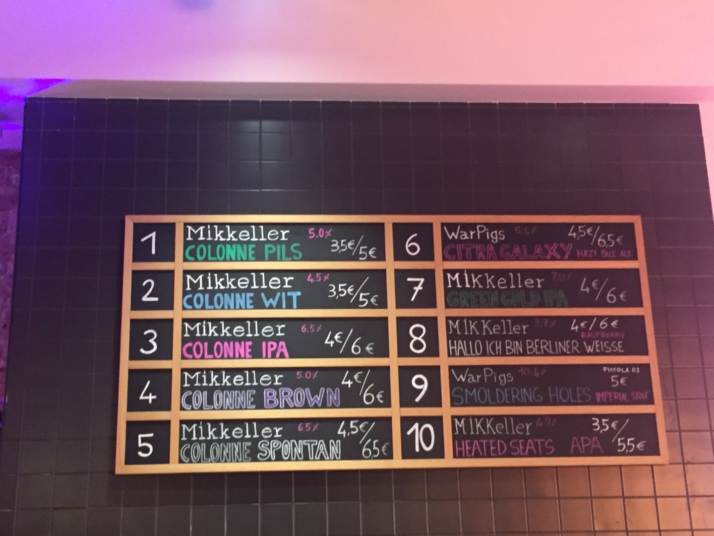 1 Mikkeller 5.0%
COLONNE PILS 3,5€/5€
2 Mikkeller 4.5%
COLONNE WIT 3,5€/5€
3 Mikkeller 6.5%
COLONNE IPA 4€/6€
4 Mikkeller 5.0% 4€/6€
COLONNE BROWN
5 Mikkeller 6.5% 4,5€/6,5€
COLONNE SPONTAN
6 WarPigs 4,5€/6,5€
CITRA GALAXY HAZY PALE ALE
7 Mikkeller 4€/6€
GREEN GOLD IPA
8 MiKKeller 4€/6€
RASPBERRY
HALLO ICH BIN BERLINER WEISSE
9 WarPigs 5€
SMOLDERING HOLES IMPERIAL STOUT
10 MIKKeller 4.9% 3,5€/5,5€
HEATED SEATS APA